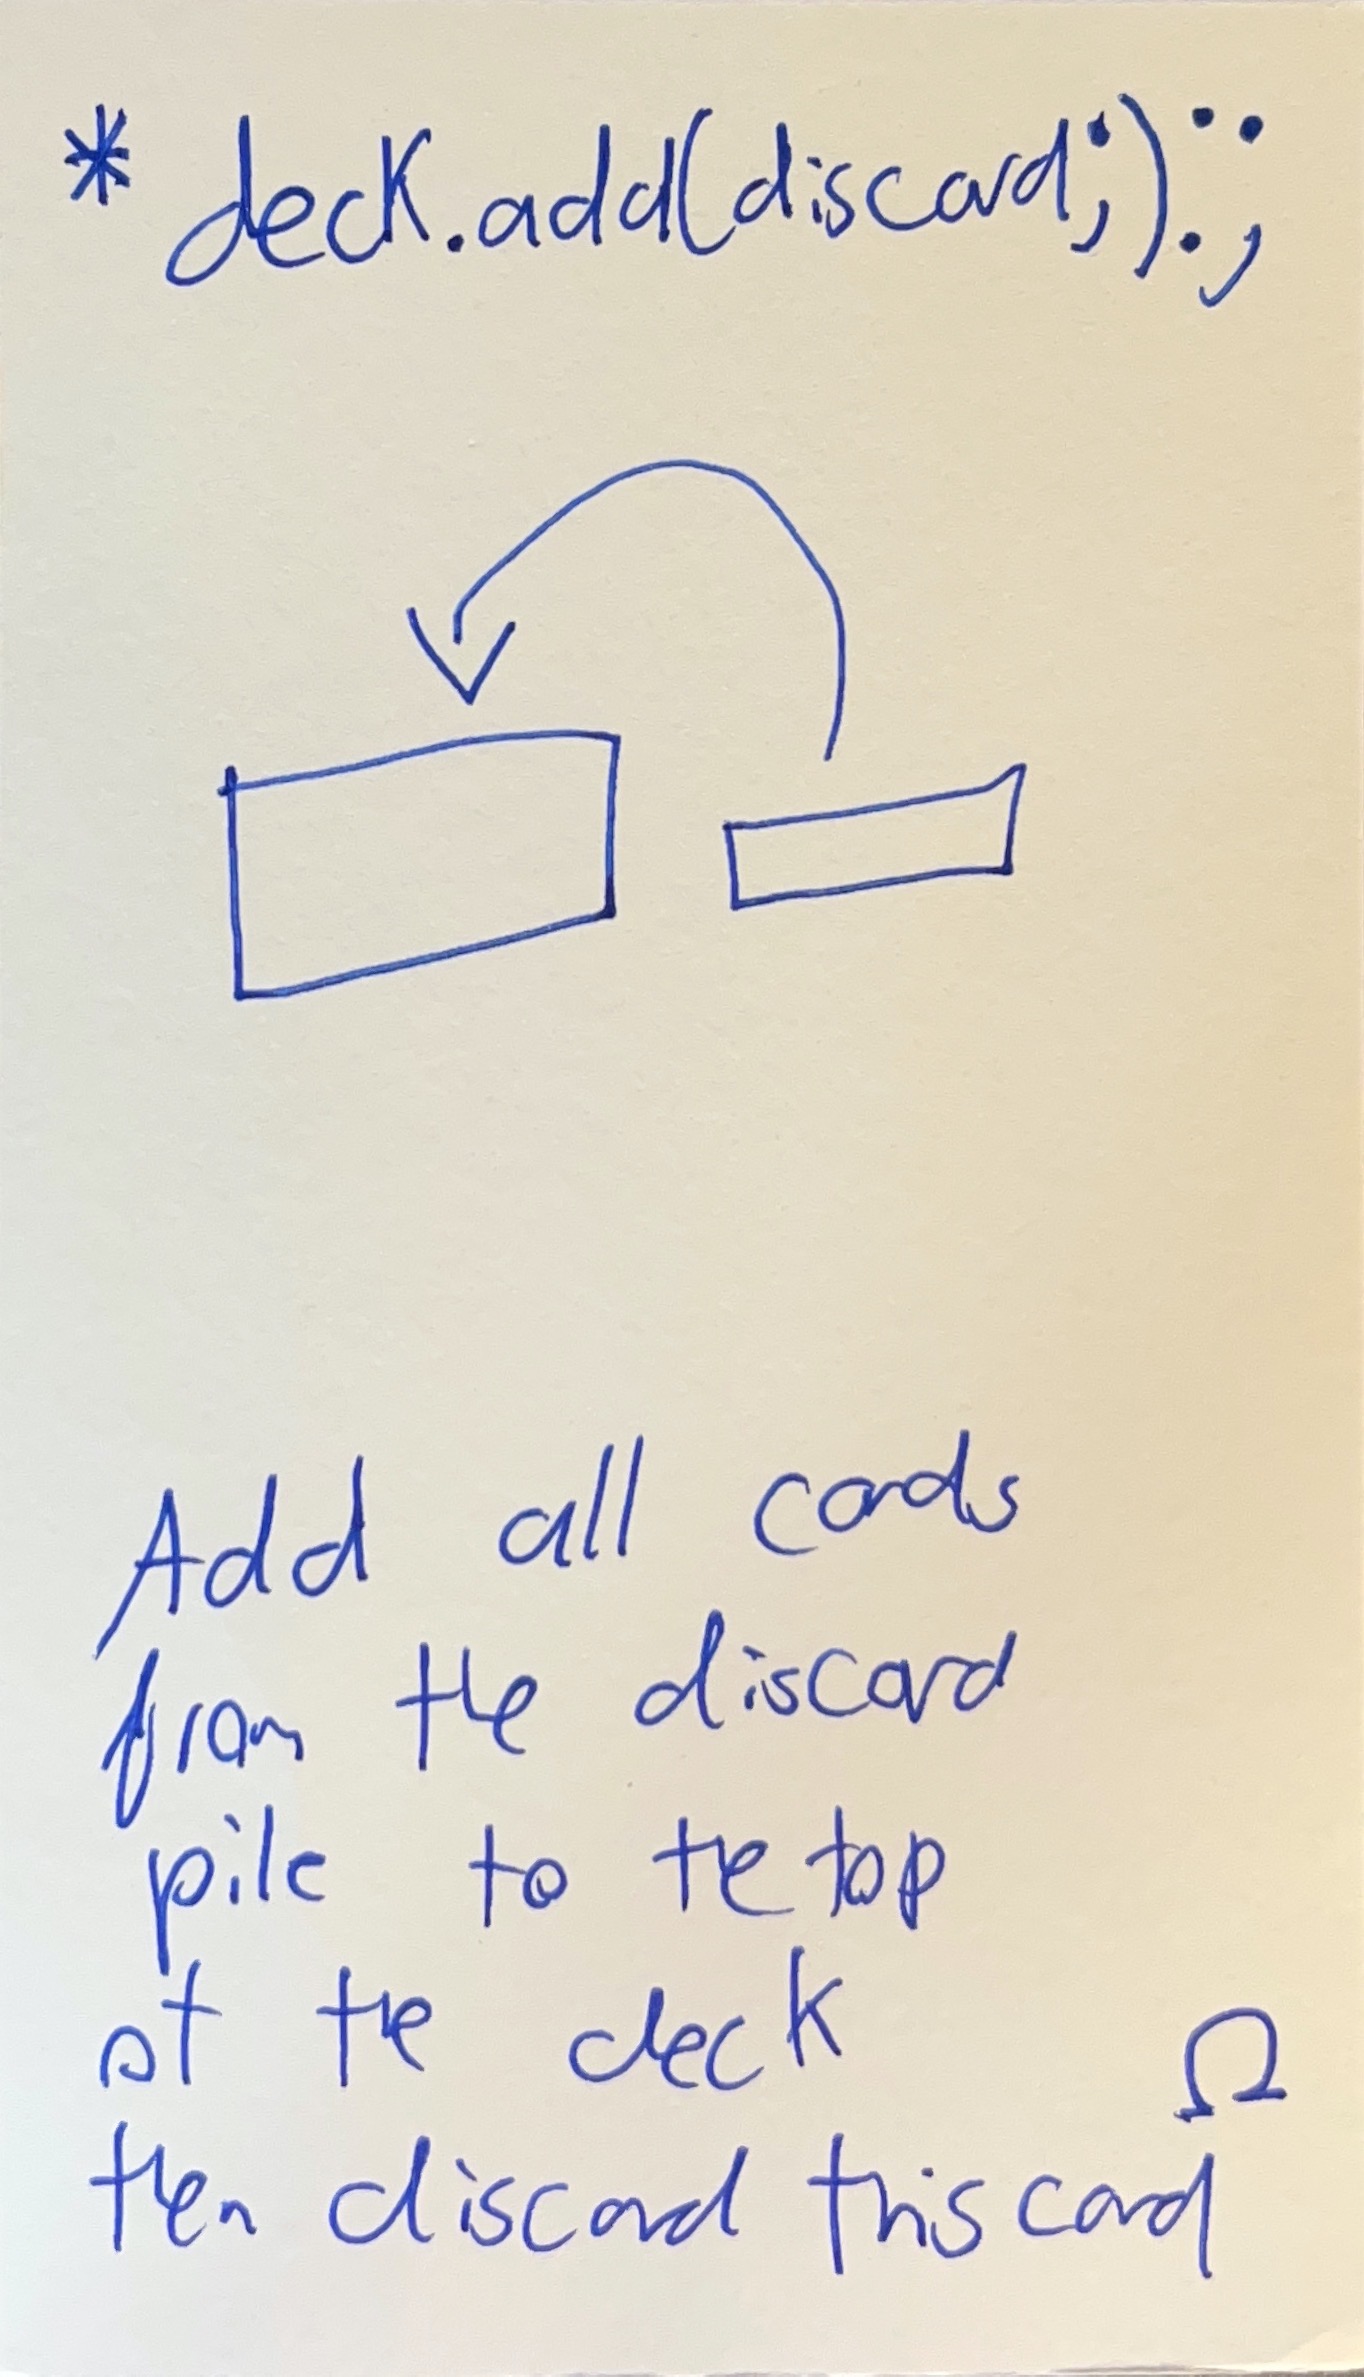 * deck.add(discard;).:;
Add all cards
from the discard
pile to the top
of the deck
Ω
then discard this card